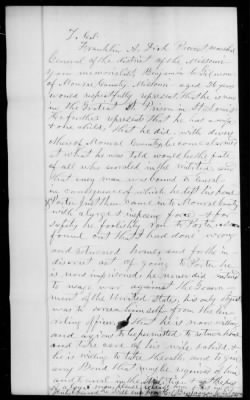 To Col.
Franklin A. Dick Provost marshal
General of the district of the Missouri
Your memorialist, Benjamin
of Monroe County Missouri aged 36 years
would respectfully represent that he is now
in the Gratiot St Prison in St Louis
He further represents that he has a wife
& one child, that he did with divers
others of Monroe County, become alarmed
at what he was told would be the fate
of all who enrolled in the militia, and
that every man was bound to enroll
in consequence of which he left his home
Porter just then came into Monroe County
with a large & imposing force & for
safety he foolishly run to Porter,
found out that he had done wrong
and returned home, and for the in
discreet act of going to Porter he
is now imprisoned, he never did intend
to wage war against the Govern
ment of the United States, his only object
was to screen himself from the en
rolling officers, that he is now willing
and anxious to be permitted to return home
and take care of his wife & child &
he is willing to take the oath and to give
any Bond that may be required of him
and